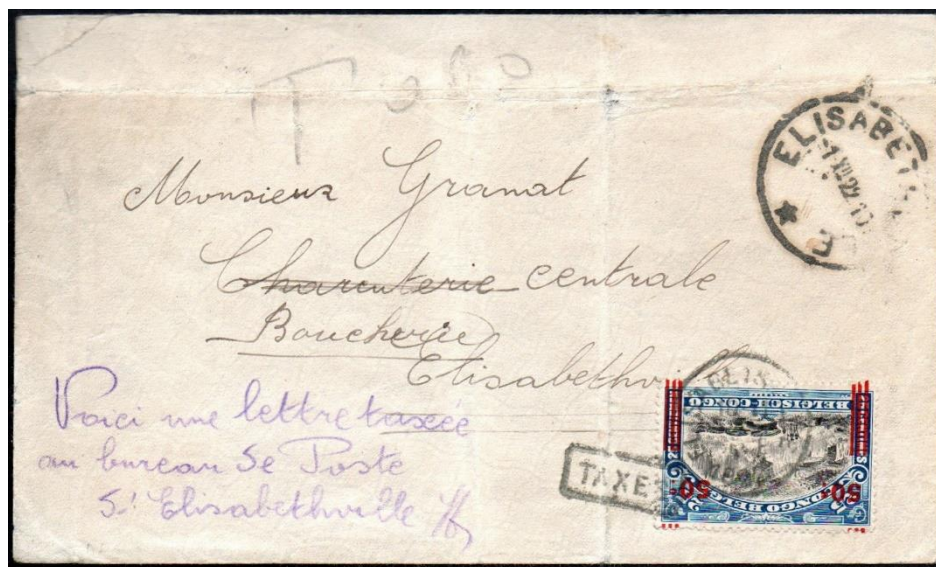 T 0.80
ELISABETH
1 XII 22
Monsieur Granat
Charcuterie centrale
Boucherie
Elisabethville
Voici une lettre taxée
au bureau de Poste
d'Elisabethville
TAXE
BELGISCH-CONGO
50c. 50c.
CONGO BELGE